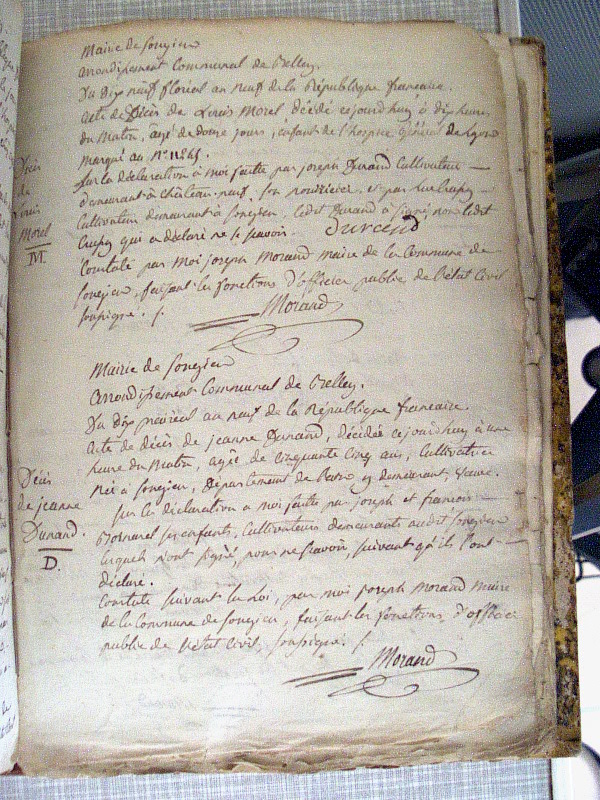 Mairie de Songieu
arrondissement Communal de Belley.
Du Dix neuf floreal an neuf de la République francaise.
Acte de Décès de Louis Morel décédé cejourdhuy à dix heures
du Matin, agé de Douze jours, enfant de l'hospice général de Lyon
Marqué au N°
Sur la déclaration à moi faite par joseph Durand Cultivateur
demeurant à Château-neuf, son nourricier, et par
Cultivateur demeurant à Songieu, ledit Durand à signé non ledit
qui a déclaré ne le scavoir. Durand
Constaté par Moi joseph Morand maire de la Commune de
Songieu, faisant les fonctions d'officier public de l'état Civil
soussigné. /.
Morand
Décès
de
Louis
Morel
M.
Mairie de Songieu
Arrondissement Communal de Belley.
Du Dix prairial an neuf de la République francaise.
Acte de décès de jeanne Dunand, décédée cejourdhuy à une
heure du Matin, agée de Cinquante Cinq ans, Cultivatrice
Née à Songieu, Département de y demeurant, veuve.
Sur la déclaration a moi faite par joseph et francois
ses enfants, Cultivateurs demeurants audit Songieu
lesquels n'ont signé, pour ne scavoir, suivant qu'ils l'ont
déclaré.
Constaté suivant la Loi, par moi joseph Morand Maire
de la Commune de Songieu, faisant les fonctions d'officier
public de l'état Civil, soussigné. /.
Morand
Décès
de jeanne
Dunand.
D.